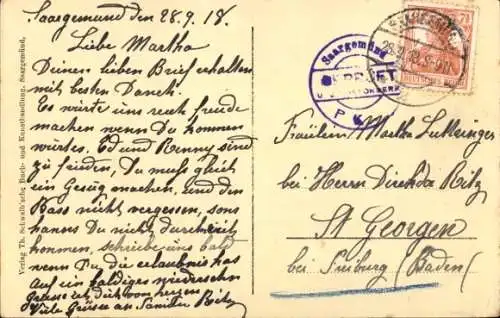 Saargemund den 28.9.18.
Liebe Martha
Deinen lieben Brief erhalten
mit besten Danck.
Es würte uns rech freude
machen wenn Du kommen
würtes. Ed und Renny sind
zu frieden, Du muss gleich
ein Gesüg machen, und den
Pass nicht vergessen, sons
kanns Du nicht durch
kommen, schreibe uns bald
wenn Du die erlaubnis has
Auf ein baldiges wiedersehen
Grüsse ich dich von herzen
Viele Grüsse an Familie Ritz
Verlag Th. Schwalb'sche Buch- und Kunsthandlung, Saargemünd.
Saargemünd
GEPRÜFT
P. K.
SAARGEMÜND
28.9.18
7½
Fräulein Martha
bei Herrn Direkdor Ritz
St Georgen
bei Freiburg (Baden)